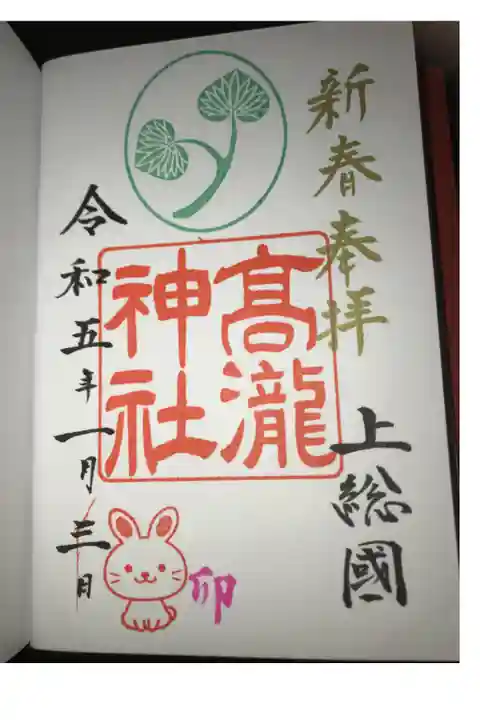 新春奉拝
上総國
髙瀧
神社
令和五年一月三日
卯